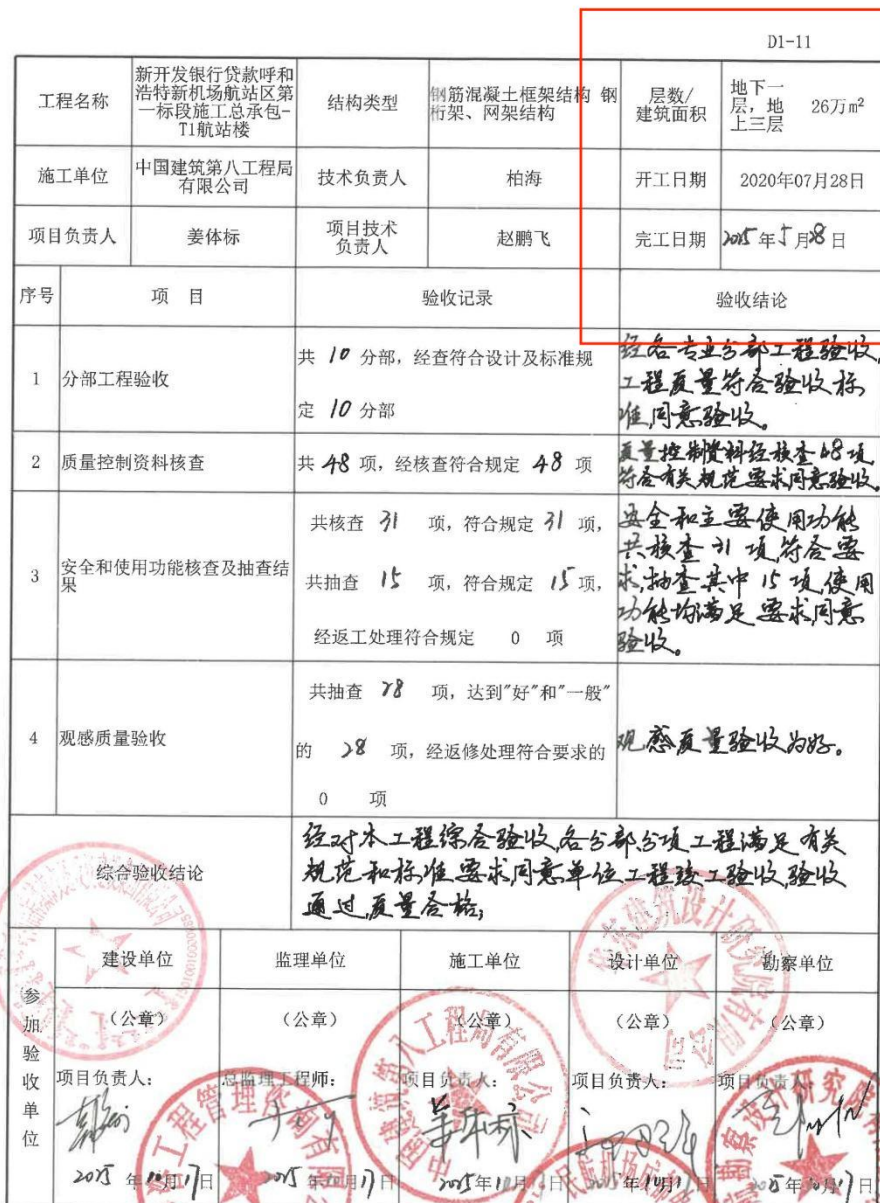 D1-11
工程名称
新开发银行贷款呼和
浩特新机场航站区第
一标段施工总承包-
T1航站楼
结构类型
钢筋混凝土框架结构 钢
桁架、网架结构
层数/
建筑面积
地下一
层，地
上三层
26万m²
施工单位
中国建筑第八工程局
有限公司
技术负责人
柏海
开工日期
2020年07月28日
项目负责人
姜体标
项目技术
负责人
赵鹏飞
完工日期
2025年5月28日
序号
项 目
验收记录
验收结论
1
分部工程验收
共 10 分部，经查符合设计及标准规
定 10 分部
经各专业分部工程验收,
工程质量符合验收标
准,同意验收。
2
质量控制资料核查
共 48 项，经核查符合规定 48 项
质量控制资料经核查48项
符合有关规范要求同意验收。
3
安全和使用功能核查及抽查结
果
共核查 31 项，符合规定 31 项，
共抽查 15 项，符合规定 15 项，
经返工处理符合规定 0 项
安全和主要使用功能
共核查 31 项,符合要
求,抽查其中 15 项,使用
功能均满足要求,同意
验收。
4
观感质量验收
共抽查 28 项，达到"好"和"一般"
的 28 项，经返修处理符合要求的
0 项
观感质量验收为好。
综合验收结论
经对本工程综合验收,各分部分项工程满足有关
规范和标准要求,同意单位工程竣工验收,验收
通过,质量合格;
参加验收单位
建设单位
监理单位
施工单位
设计单位
勘察单位
（公章）
（公章）
（公章）
（公章）
（公章）
项目负责人：
总监理工程师：
项目负责人：
项目负责人：
项目负责人：
2025 年10月17日
2025 年10月17日
2025年10月 日
年10月17日
2025年10月17日